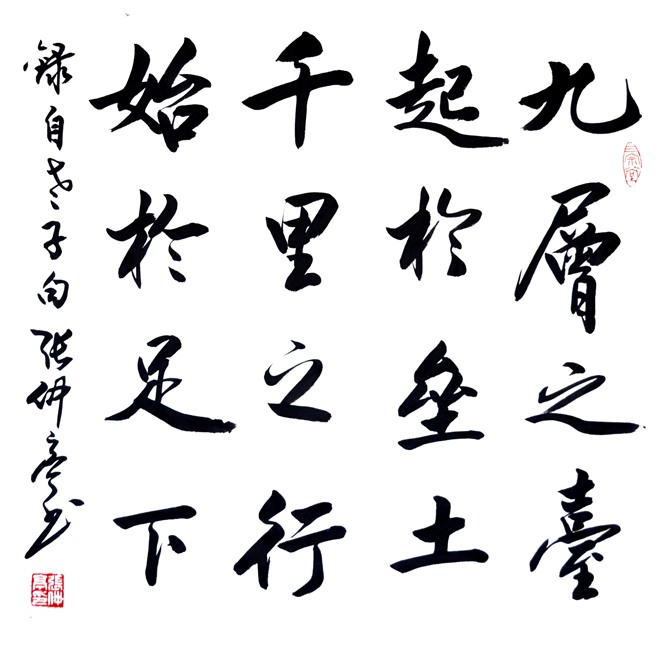 九層之臺
起於垒土
千里之行
始於足下
録自老子句张仲亭书